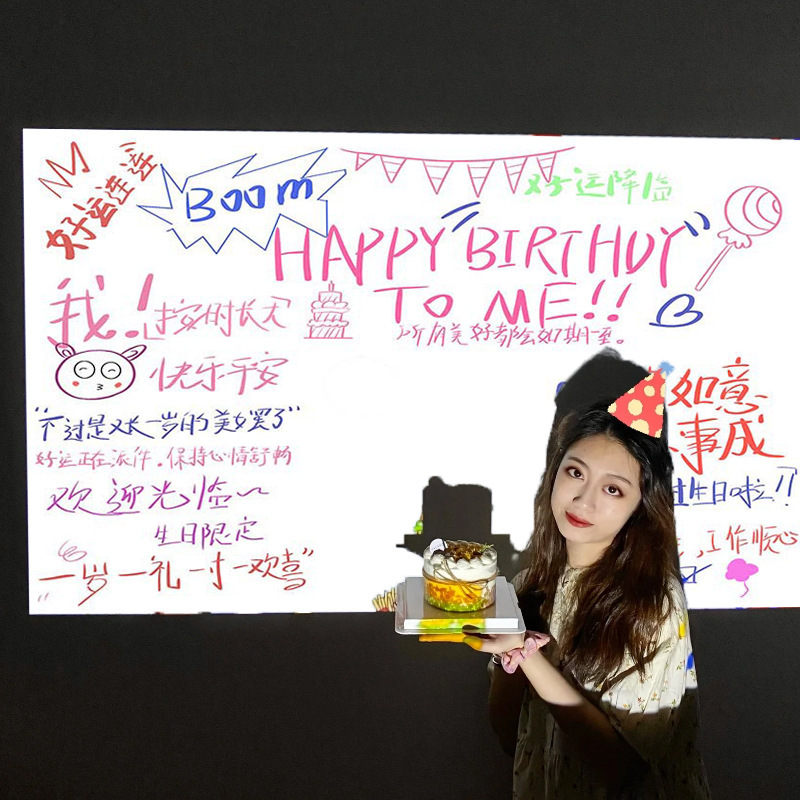 好运连连
Boom
好运降临
HAPPY BIRTHDY
TO ME!!
所有美好都会如期一至。
我!按时长大
快乐平安
"不过是又长一岁的美女罢了"
好运正在派件，保持心情舒畅
欢迎光临~
生日限定
"一岁一礼 一寸一欢喜"
如意
事成
过生日啦!!
，工作顺心